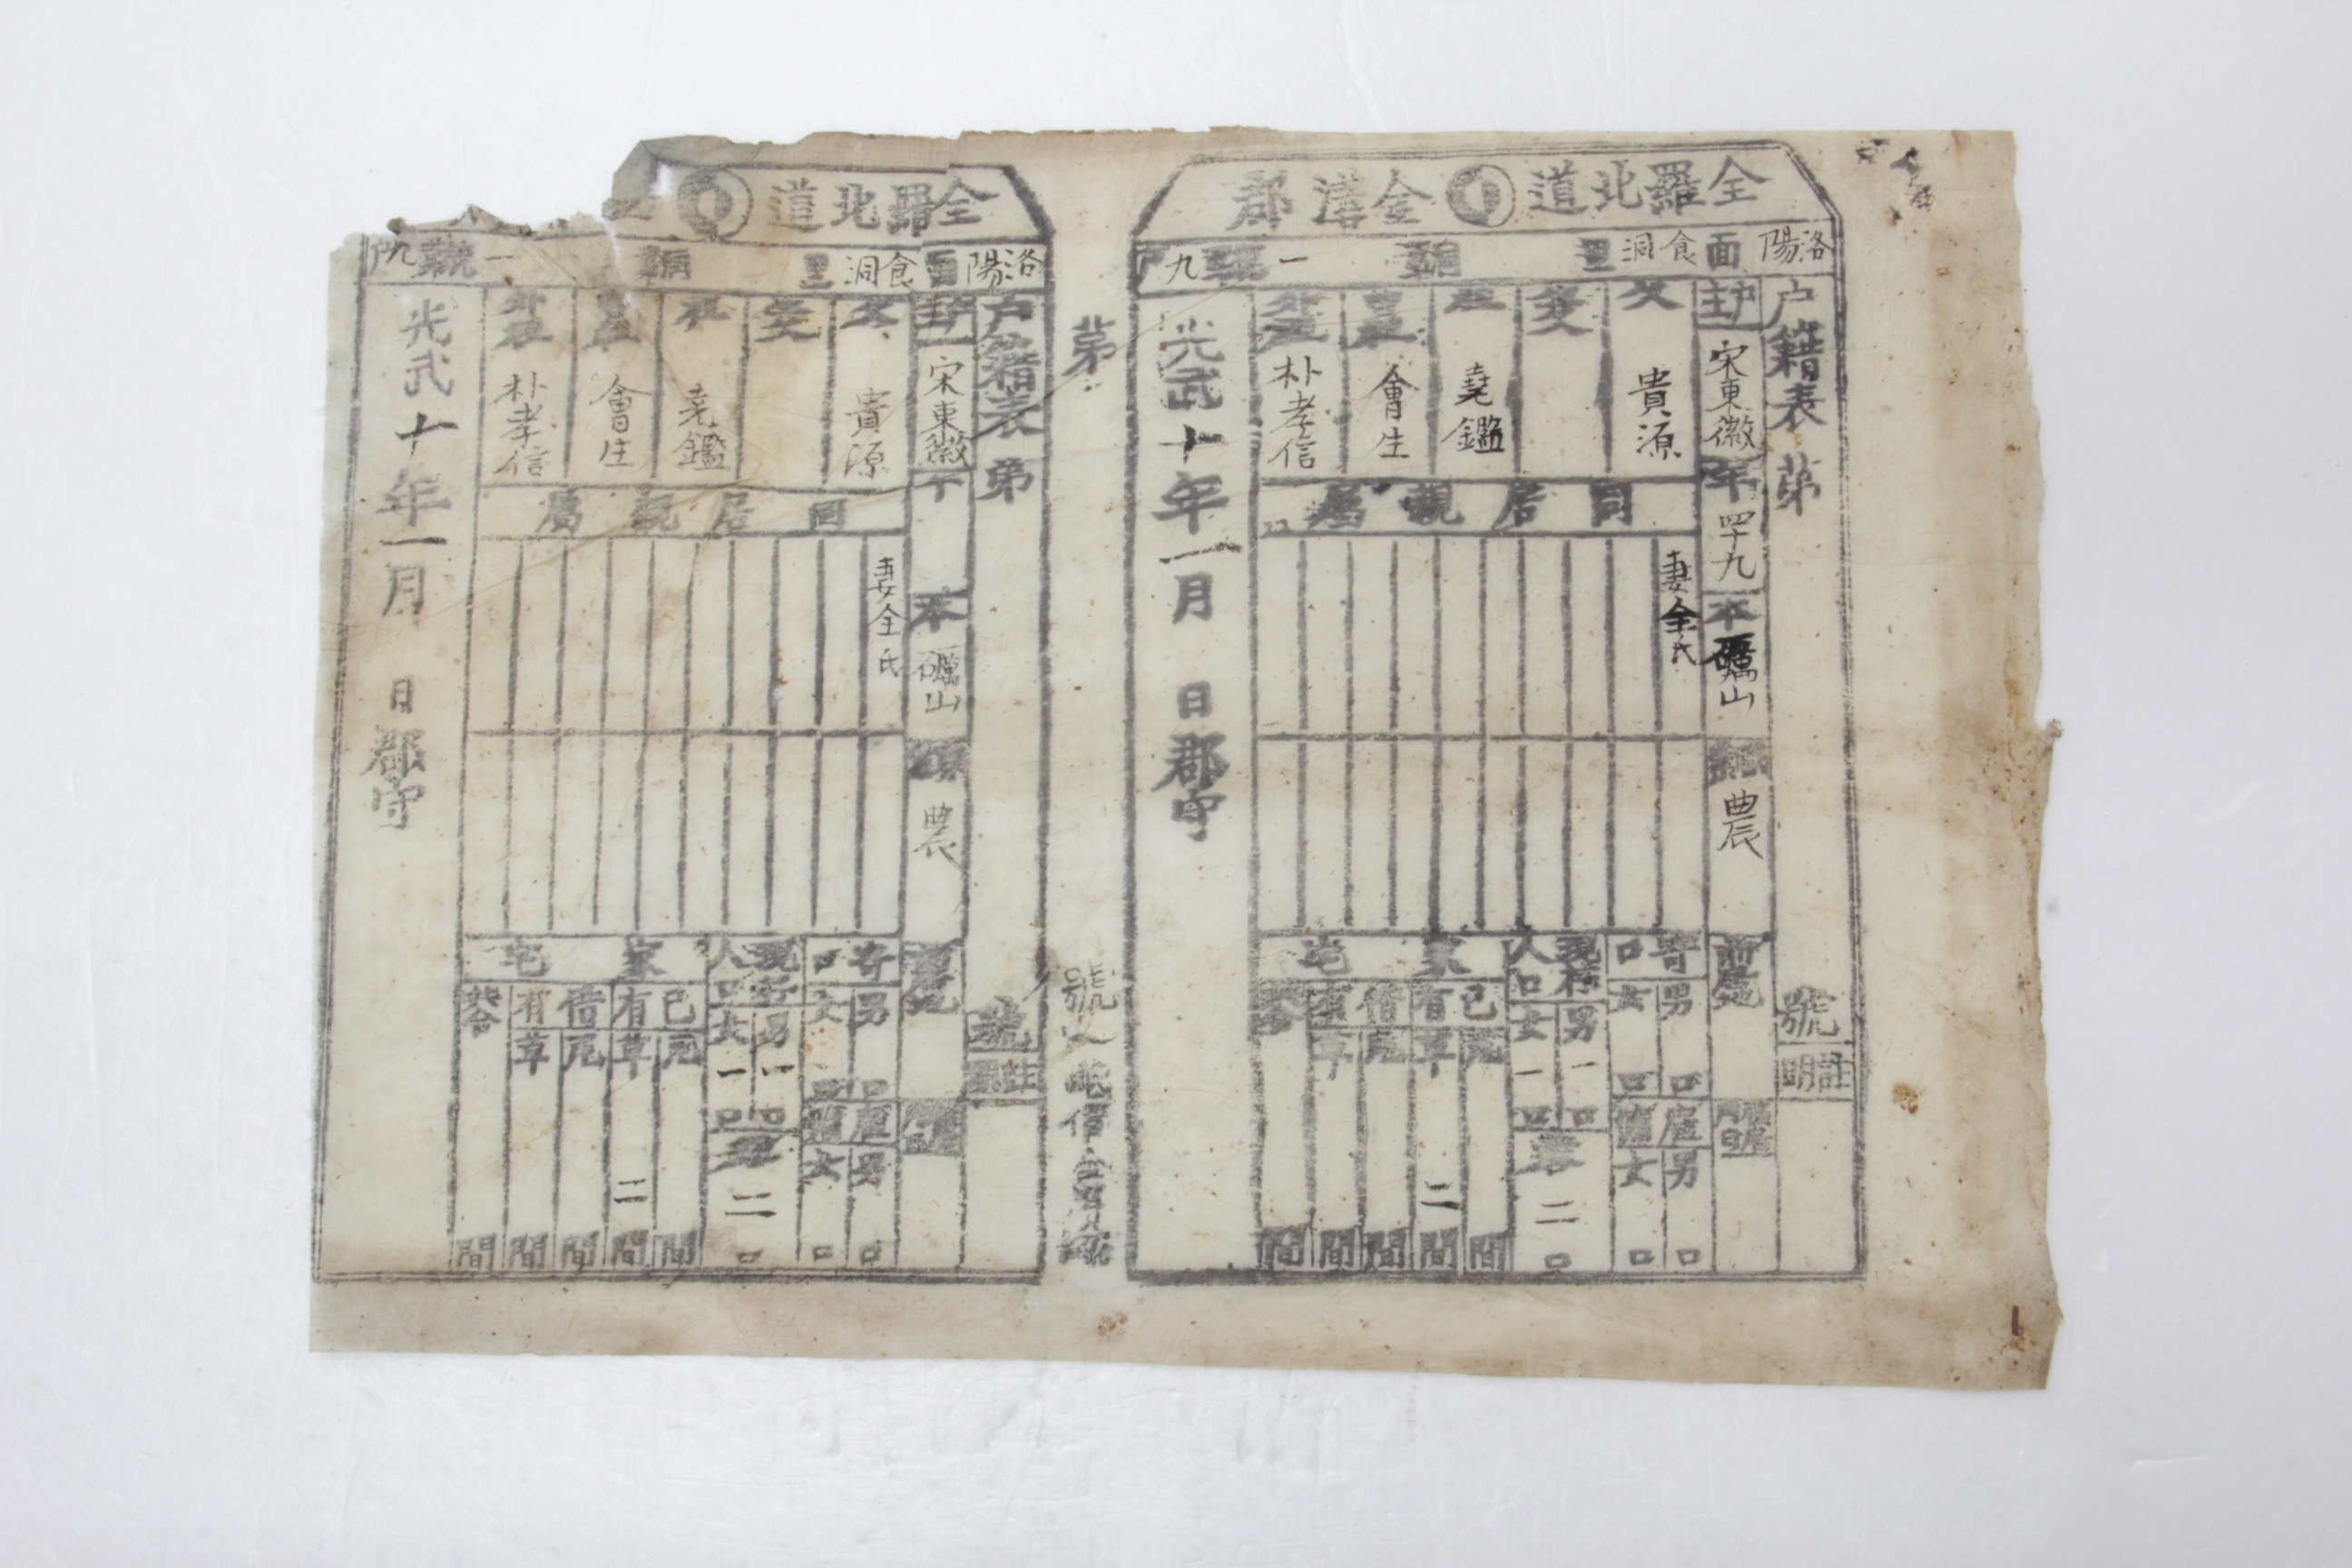 全羅北道 金溝郡
洛陽面 食洞里 統 一號 九戶
戶籍表 第 號
註明
戶主 宋東徽 年 四十九 本 礪山 職業 農 前居地
父 貴源
生父
祖 堯鑑
曾祖 會生
外祖 朴孝信
同居親屬
妻 全氏
寄口 男 口 女 口
雇傭 男 口 女 口
現存人口 男 一 口 女 一 口
二 口
家宅
己有 瓦 間 草 二 間
借有 瓦 間 草 間
間
光武十年一月 日 郡守
第 號
全羅北道
洛陽面 食洞里 統 一號 九戶
戶籍表 第 號
註
戶主 宋東徽 年 本 礪山 農
父 貴源
生父
祖 堯鑑
曾祖 會生
外祖 朴孝信
同居親屬
妻 全氏
寄口 男 口 女 口
雇傭 男 口 女 口
現存人口 男 一 口 女 一 口
二 口
家宅
己有 瓦 間 草 二 間
借有 瓦 間 草 間
間
光武十年一月 日 郡守